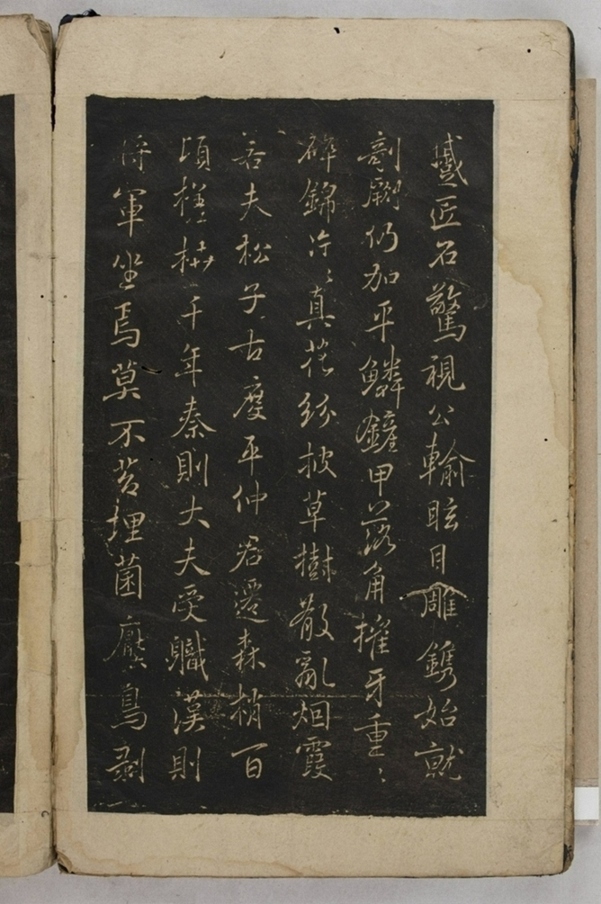 蹙匠石驚視公輸眩目雕鐫始就
剞劂仍加平鱗鏟甲落角摧牙重〻
碎錦片〻真花紛披草樹散亂烟霞
若夫松子古度平仲君遷森梢百
頃槎枿千年秦則大夫受職漢則
將軍坐焉莫不苔埋菌壓鳥剝